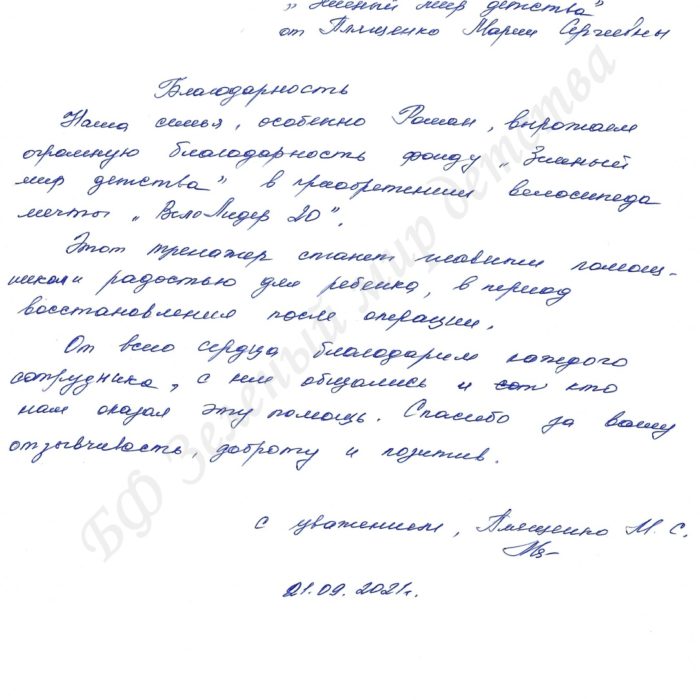 „Зиеный мир детства”
от Плященко Марии Сергеевны
Благодарность
Наша семья, особенно Роман, выражаем
огромную благодарность фонду „Зиеный
мир детства” в приобретении велосипеда
мечты „ВелоЛидер 20”.
Этот тренажер станет главным помощ-
ником и радостью для ребенка, в период
восстановления после операции.
От всего сердца благодарим каждого
сотрудника, с кем общались и кто
нам оказал эту помощь. Спасибо за вашу
отзывчивость, доброту и позитив.
С уважением, Плященко М. С.
21.09.2021г.
БФ Зеленый мир детства